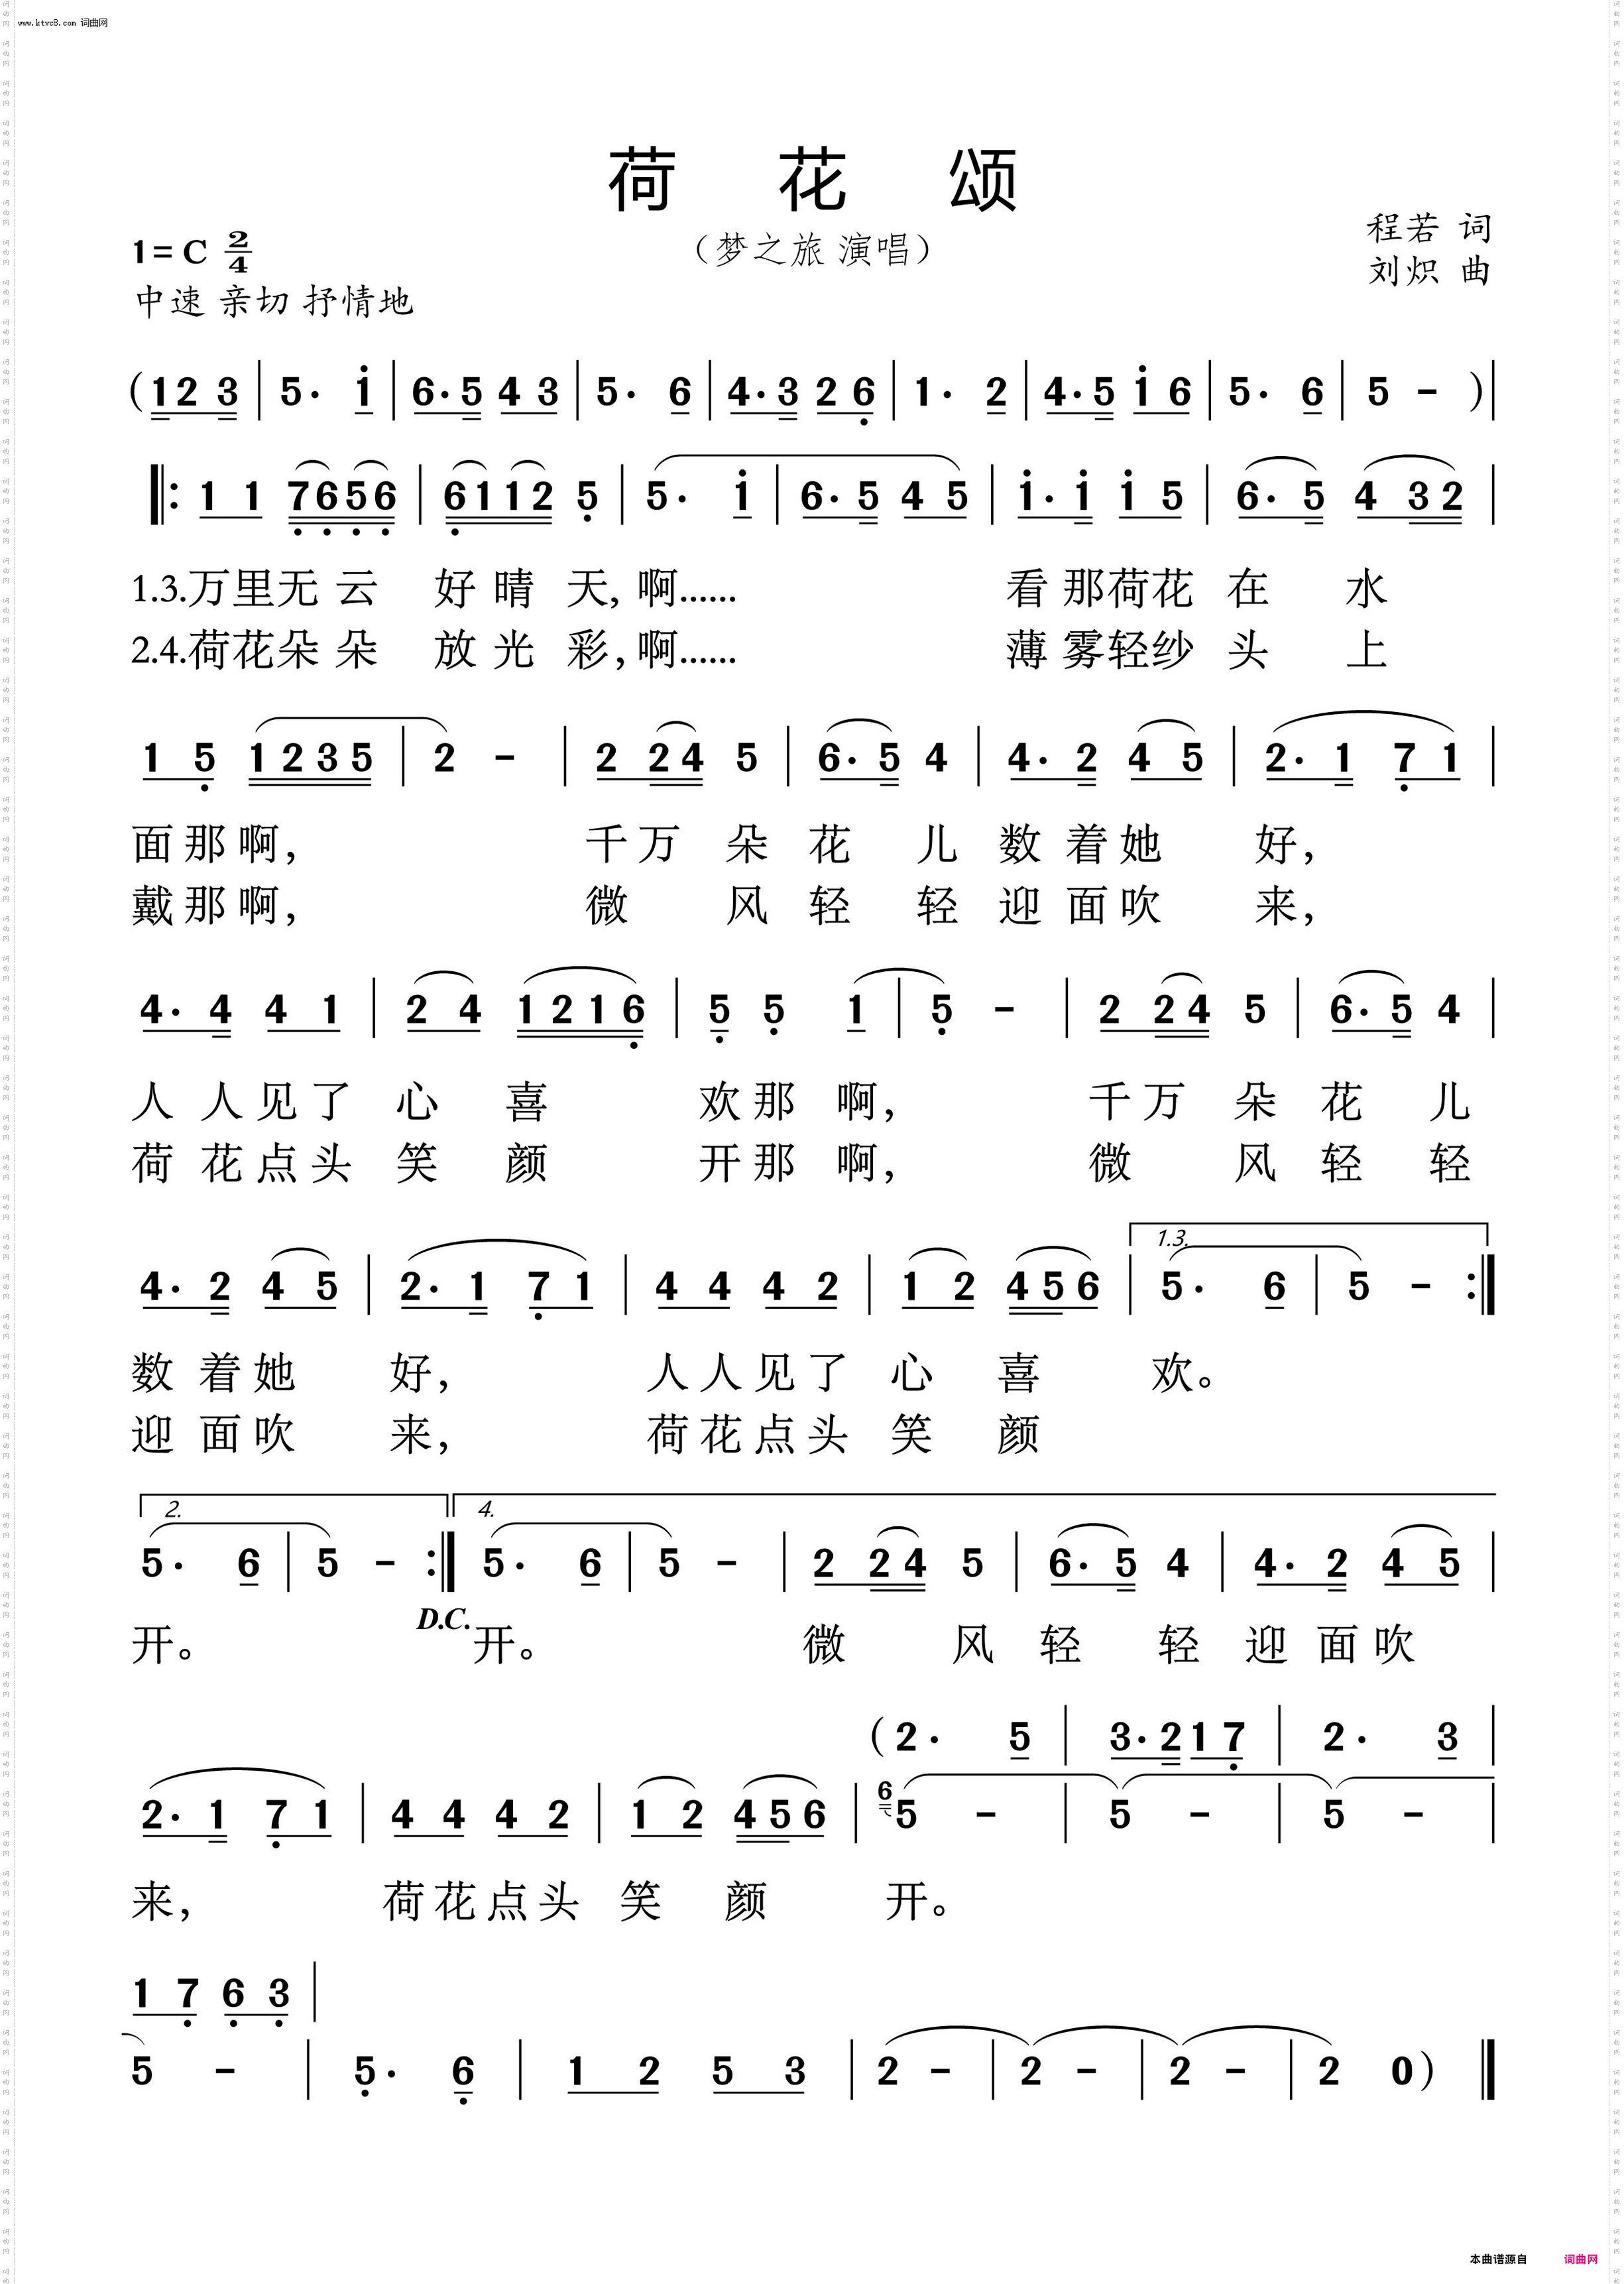 www.ktvc8.com 词曲网
荷 花 颂
(梦之旅 演唱)
程若 词
刘炽 曲
1=C 2/4
中速 亲切 抒情地
(12 3 | 5. i | 6.5 4 3 | 5. 6 | 4.3 2 6 | 1. 2 | 4.5 i 6 | 5. 6 | 5 - ) |
|: 1 1 7656 | 6112 5 | 5. i | 6. 5 4 5 | i. i i 5 | 6. 5 4 32 |
1.3.万里无云 好晴天,啊…… 看那荷花在水
2.4.荷花朵朵 放光彩,啊…… 薄雾轻纱头上
1 5 1235 | 2 - | 2 24 5 | 6. 5 4 | 4. 2 4 5 | 2. 1 7 1 |
面那啊, 千万朵花儿数着她好,
戴那啊, 微风轻轻迎面吹来,
4. 4 4 1 | 2 4 1216 | 5 5 1 | 5 - | 2 24 5 | 6. 5 4 |
人人见了心喜欢那啊, 千万朵花儿
荷花点头笑颜开那啊, 微风轻轻
1.3.
4. 2 4 5 | 2. 1 7 1 | 4 4 4 2 | 1 2 456 | 5. 6 | 5 - :|
数着她好, 人人见了心喜欢。
迎面吹来, 荷花点头笑颜
2. 4.
5. 6 | 5 - :| 5. 6 | 5 - | 2 24 5 | 6. 5 4 | 4. 2 4 5 |
D.C.
开。 开。 微风轻轻迎面吹
(2. 5 | 3.2 1 7 | 2. 3 |
2. 1 7 1 | 4 4 4 2 | 1 2 456 | 6 5 - | 5 - | 5 - |
来, 荷花点头笑颜开。
1 7 6 3 |
5 - | 5. 6 | 1 2 5 3 | 2 - | 2 - | 2 - | 2 0) ||
本曲谱源自 词曲网